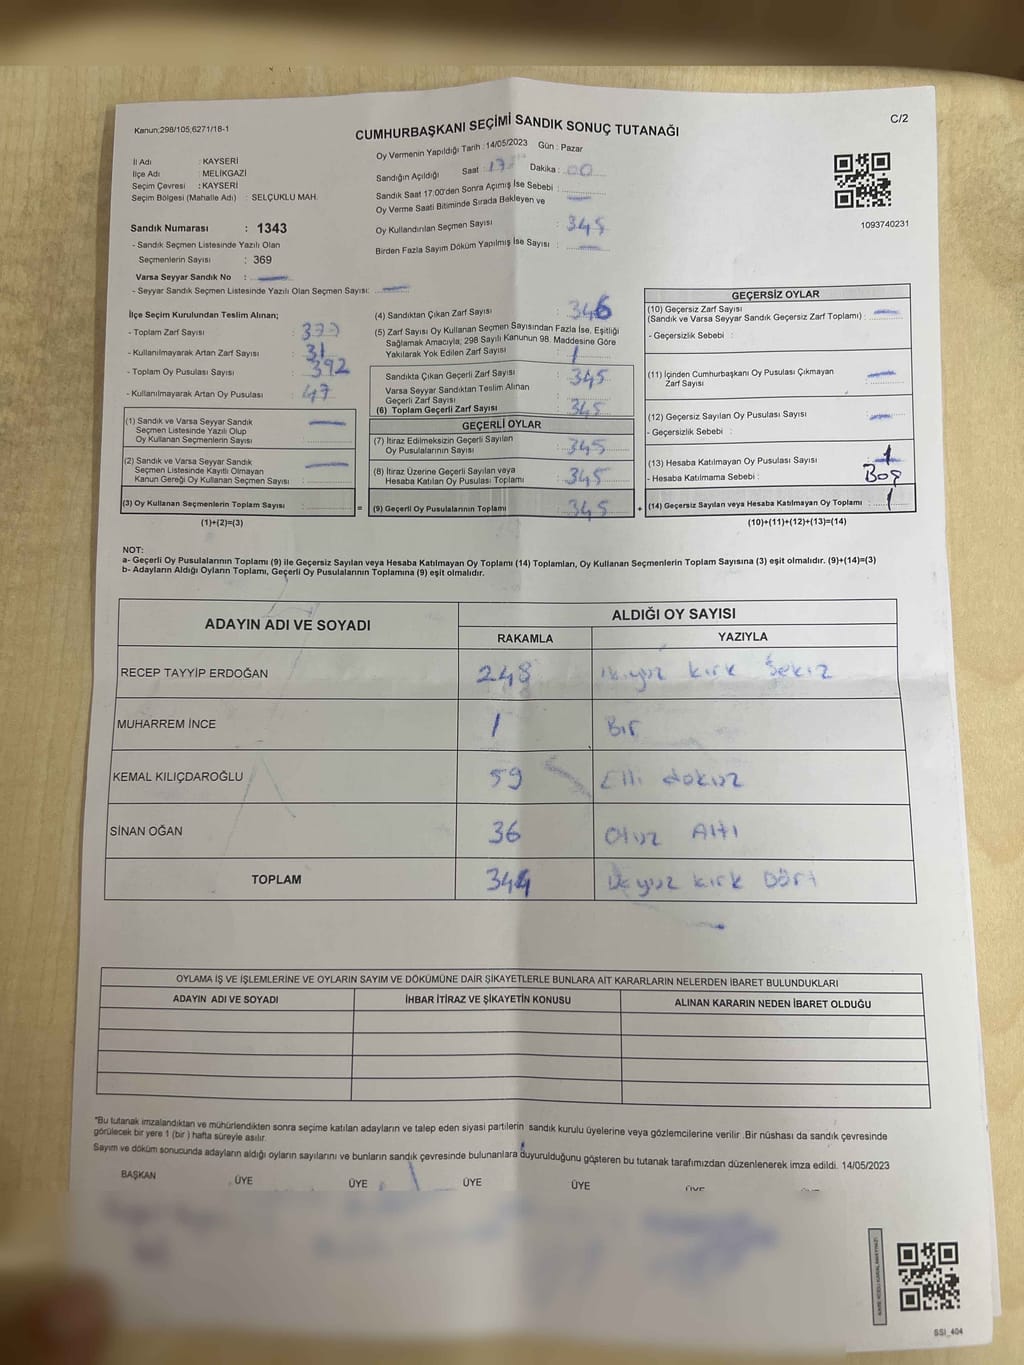 Kanun:298/105;6271/18-1
C/2
CUMHURBAŞKANI SEÇİMİ SANDIK SONUÇ TUTANAĞI
İl Adı : KAYSERİ
İlçe Adı : MELİKGAZİ
Seçim Çevresi : KAYSERİ
Seçim Bölgesi (Mahalle Adı) : SELÇUKLU MAH.
Oy Vermenin Yapıldığı Tarih : 14/05/2023 Gün : Pazar
Sandığın Açıldığı Saat : 17 Dakika : 00
Sandık Saat 17.00'den Sonra Açımış İse Sebebi :
Oy Verme Saati Bitiminde Sırada Bekleyen ve
Oy Kullandırılan Seçmen Sayısı : 345
Birden Fazla Sayım Döküm Yapılmış İse Sayısı :
1093740231
Sandık Numarası : 1343
- Sandık Seçmen Listesinde Yazılı Olan
Seçmenlerin Sayısı : 369
Varsa Seyyar Sandık No :
- Seyyar Sandık Seçmen Listesinde Yazılı Olan Seçmen Sayısı:
İlçe Seçim Kurulundan Teslim Alınan;
- Toplam Zarf Sayısı :
- Kullanılmayarak Artan Zarf Sayısı : 31
- Toplam Oy Pusulası Sayısı : 392
- Kullanılmayarak Artan Oy Pusulası : 47
(1) Sandık ve Varsa Seyyar Sandık
Seçmen Listesinde Yazılı Olup
Oy Kullanan Seçmenlerin Sayısı :
(2) Sandık ve Varsa Seyyar Sandık
Seçmen Listesinde Kayıtlı Olmayan
Kanun Gereği Oy Kullanan Seçmen Sayısı :
(3) Oy Kullanan Seçmenlerin Toplam Sayısı :
(1)+(2)=(3)
=
(4) Sandıktan Çıkan Zarf Sayısı : 346
(5) Zarf Sayısı Oy Kullanan Seçmen Sayısından Fazla İse, Eşitliği
Sağlamak Amacıyla; 298 Sayılı Kanunun 98. Maddesine Göre
Yakılarak Yok Edilen Zarf Sayısı : 1
Sandıkta Çıkan Geçerli Zarf Sayısı : 345
Varsa Seyyar Sandıktan Teslim Alınan
Geçerli Zarf Sayısı :
(6) Toplam Geçerli Zarf Sayısı : 345
GEÇERLİ OYLAR
(7) İtiraz Edilmeksizin Geçerli Sayılan
Oy Pusulalarının Sayısı : 345
(8) İtiraz Üzerine Geçerli Sayılan veya
Hesaba Katılan Oy Pusulası Toplamı : 345
(9) Geçerli Oy Pusulalarının Toplamı : 345
+
GEÇERSİZ OYLAR
(10) Geçersiz Zarf Sayısı
(Sandık ve Varsa Seyyar Sandık Geçersiz Zarf Toplamı) :
- Geçersizlik Sebebi :
(11) İçinden Cumhurbaşkanı Oy Pusulası Çıkmayan
Zarf Sayısı :
(12) Geçersiz Sayılan Oy Pusulası Sayısı :
- Geçersizlik Sebebi :
(13) Hesaba Katılmayan Oy Pusulası Sayısı : 1
- Hesaba Katılmama Sebebi : Boş
(14) Geçersiz Sayılan veya Hesaba Katılmayan Oy Toplamı : 1
(10)+(11)+(12)+(13)=(14)
NOT:
a- Geçerli Oy Pusulalarının Toplamı (9) ile Geçersiz Sayılan veya Hesaba Katılmayan Oy Toplamı (14) Toplamları, Oy Kullanan Seçmenlerin Toplam Sayısına (3) eşit olmalıdır. (9)+(14)=(3)
b- Adayların Aldığı Oyların Toplamı, Geçerli Oy Pusulalarının Toplamına (9) eşit olmalıdır.
ADAYIN ADI VE SOYADI
ALDIĞI OY SAYISI
RAKAMLA YAZIYLA
RECEP TAYYİP ERDOĞAN 248 ikiyüz kırk Sekiz
MUHARREM İNCE 1 Bir
KEMAL KILIÇDAROĞLU 59 Elli dokuz
SİNAN OĞAN 36 Otuz Altı
TOPLAM 344 Üçyüz kırk Dört
OYLAMA İŞ VE İŞLEMLERİNE VE OYLARIN SAYIM VE DÖKÜMÜNE DAİR ŞİKAYETLERLE BUNLARA AİT KARARLARIN NELERDEN İBARET BULUNDUKLARI
ADAYIN ADI VE SOYADI İHBAR İTİRAZ VE ŞİKAYETİN KONUSU ALINAN KARARIN NEDEN İBARET OLDUĞU
*Bu tutanak imzalandıktan ve mühürlendikten sonra seçime katılan adayların ve talep eden siyasi partilerin sandık kurulu üyelerine veya gözlemcilerine verilir .Bir nüshası da sandık çevresinde
görülecek bir yere 1 (bir ) hafta süreyle asılır.
Sayım ve döküm sonucunda adayların aldığı oyların sayılarını ve bunların sandık çevresinde bulunanlara duyurulduğunu gösteren bu tutanak tarafımızdan düzenlenerek imza edildi. 14/05/2023
BAŞKAN ÜYE ÜYE ÜYE ÜYE ÜYE
SSI_404